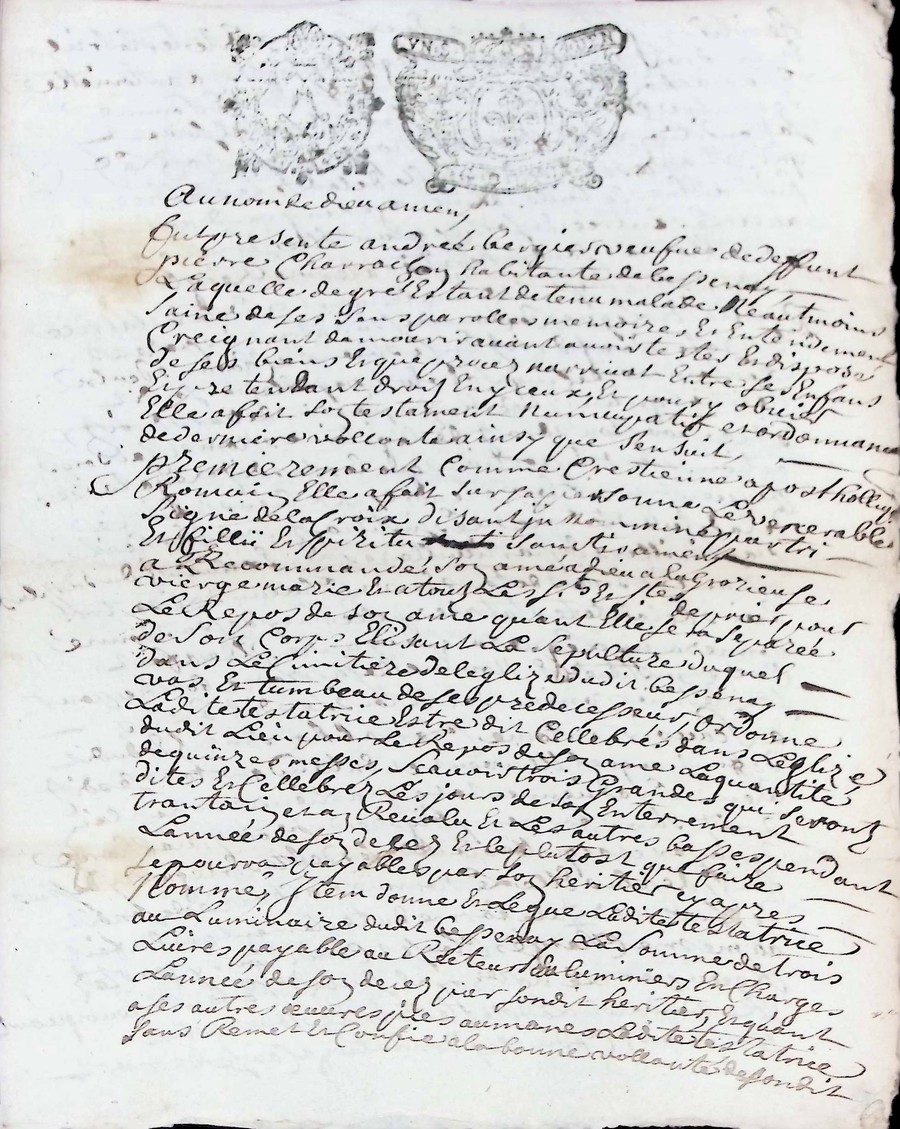 Au nom de dieu amen,
fut presente andreé bergies veufue de deffunt
pierre Charraison habitante de bessenay,
Laquelle de gré Estant detenu malade Neautmoins
saine de ses sens parolles memoires Et Entendement
Creignant de mourir avant avoir testes Et disposé
de ses biens Et que procez narrivat Entre ses Enfans
Et pretendant droit En yceux, Et pour y obvier
Elle a fait son testament Nuncupatif et ordonnance
de derniere vollonte ainsy que sensuit
premierement Comme Crestienne aposthollique
Romain Elle a fait sur sa personne Le venerable
signe de la Croix disant in nommine partri
Et fillii Et spiritu sancti amen
a Recommandé son ame a dieu a La glorieuse
vierge marie Et a tous Les sts Et stes de prier pour
Le Repos de son ame quant Elle sera separée
de son Corps Elisant La sepulture duquel
dans Le Cimitiere de leglize dudit bessenay
vas Et tumbeau de ses predecesseur, ordonne
Ladite testatrice Estre dit Cellebres dans Leglize
dudit Lieu pour Le Repos de son ame La quantité
de quinze messes, scauoir trois Grandes qui seront
dites Et Cellebrez Les jours de son Enterrement
trantain et au Revolu Et Les autres basses pendant
Lannée de son decez Et le plutost que faire
se pourra payables par son heritier cy apres
Nommé, Item donne Et Legue Ladite testatrice
au Luminaire dudit bessenay La somme de trois
Livres payable au Recteur Luminiers En Charges
Lannée de son decez par sondit heritier, Et quant
a ses autres œuvres pies aumones Ladite testatrice
sans Remet Et Confie a la bonne vollonté de sondit